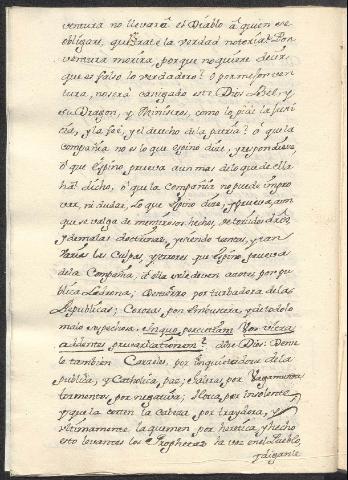 ventura no llevará el Diablo á quien ese
obligare, quitarále la verdad notoria? Por
ventura morira, porque no quiere decir
que es falso lo verdadero? O por mejor ven
tura, no será castigado este Dios Abel, y
su Dragon, y Ministros, como lo pide la Justi
cia, y la feé, y el derecho de la patria? O que la
compañia no es lo que espino dice, y responderé,
ó que Espino prueva aun mas de lo que de ella
há dicho, ó que la compañia no puede impro
var, ni dudar, lo que Espino dice, y prueva, aun
que se valga de mentirosos hechos, retorcidos
y de malas doctrinas, y siendo tantas, y tan
varias las Culpas, y errores que Espino prueva
de la Compañia, á ella se le deven azotes por pu
blica Ladrona; Destierro por turbadora de las
Republicas; Coroza por embustera, y de todo lo
malo sospechosa. In quo percutiam Vos ultra
addentes prævaricationem? dice Dios. Dente
le tambien Cordeles, por inquietadora de la
publica, y Catholica, paz; Galeras, por Vagamunda
tormentos, por negativa; Horca, por insolente,
y que la corten la cabeza por traydora, y
ultimamente la quemen, por heretica, y hecho
esto levanten los Prophetas la voz en el Pueblo,
y digan le